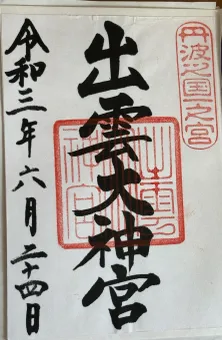 丹波之国一之宮
出雲大神宮
令和三年六月二十四日